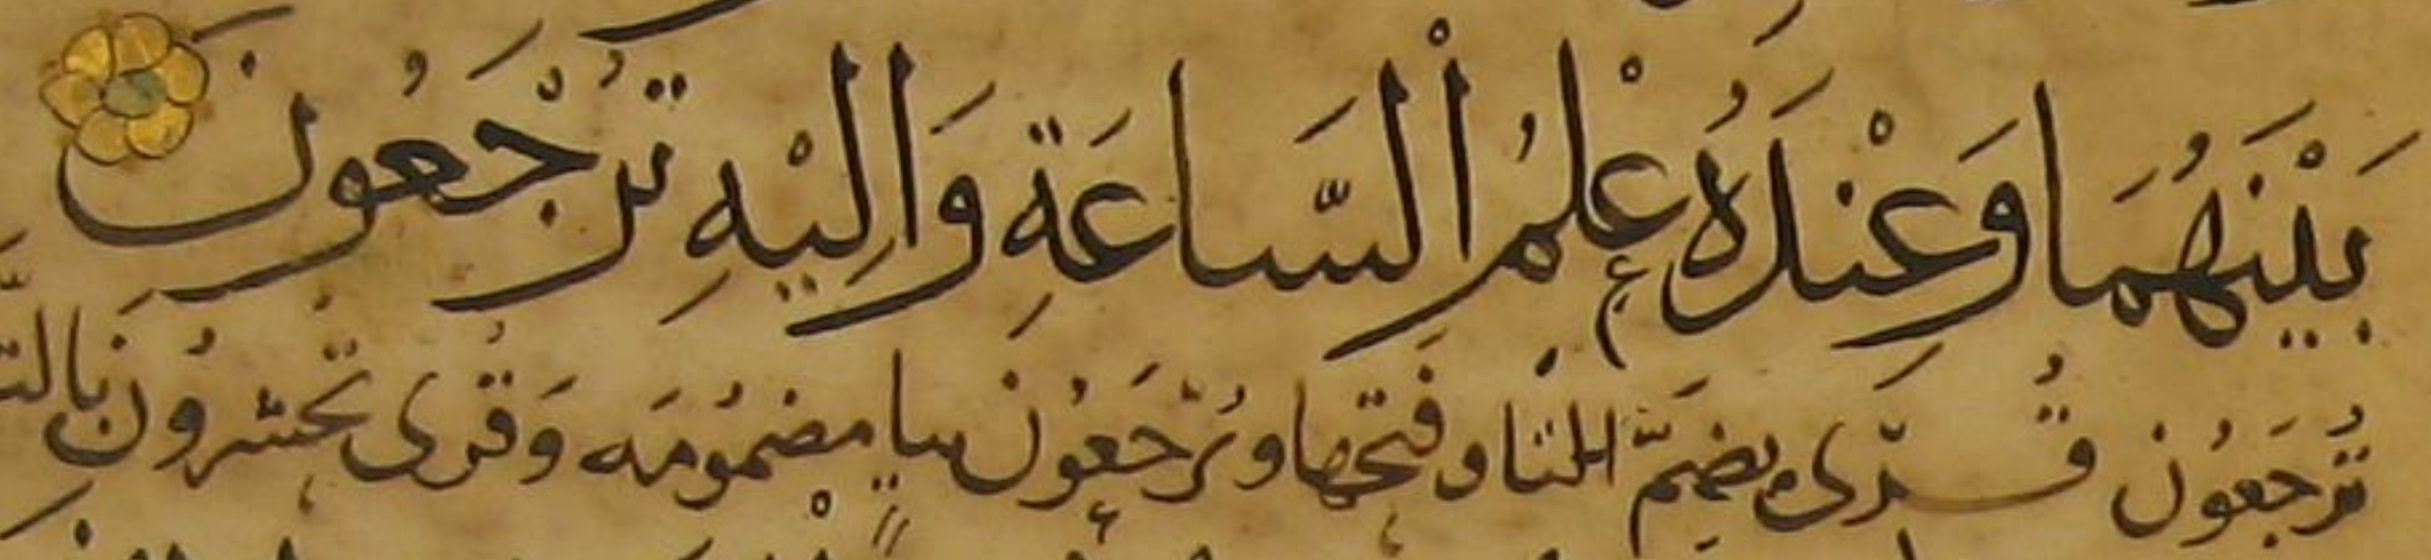 بَيْنَهُمَا وَعِنْدَهُ عِلْمُ الْسَّاعَةِ وَاِلَيْهِ تُرْجَعُونَ
تُرْجَعُونَ قُرِىَ بِضَمِّ التا وفَتحها ويُرْجَعُونَ بيا مضمُومَه وَقُرِىَ تُحْشَرُونَ بالتَّا